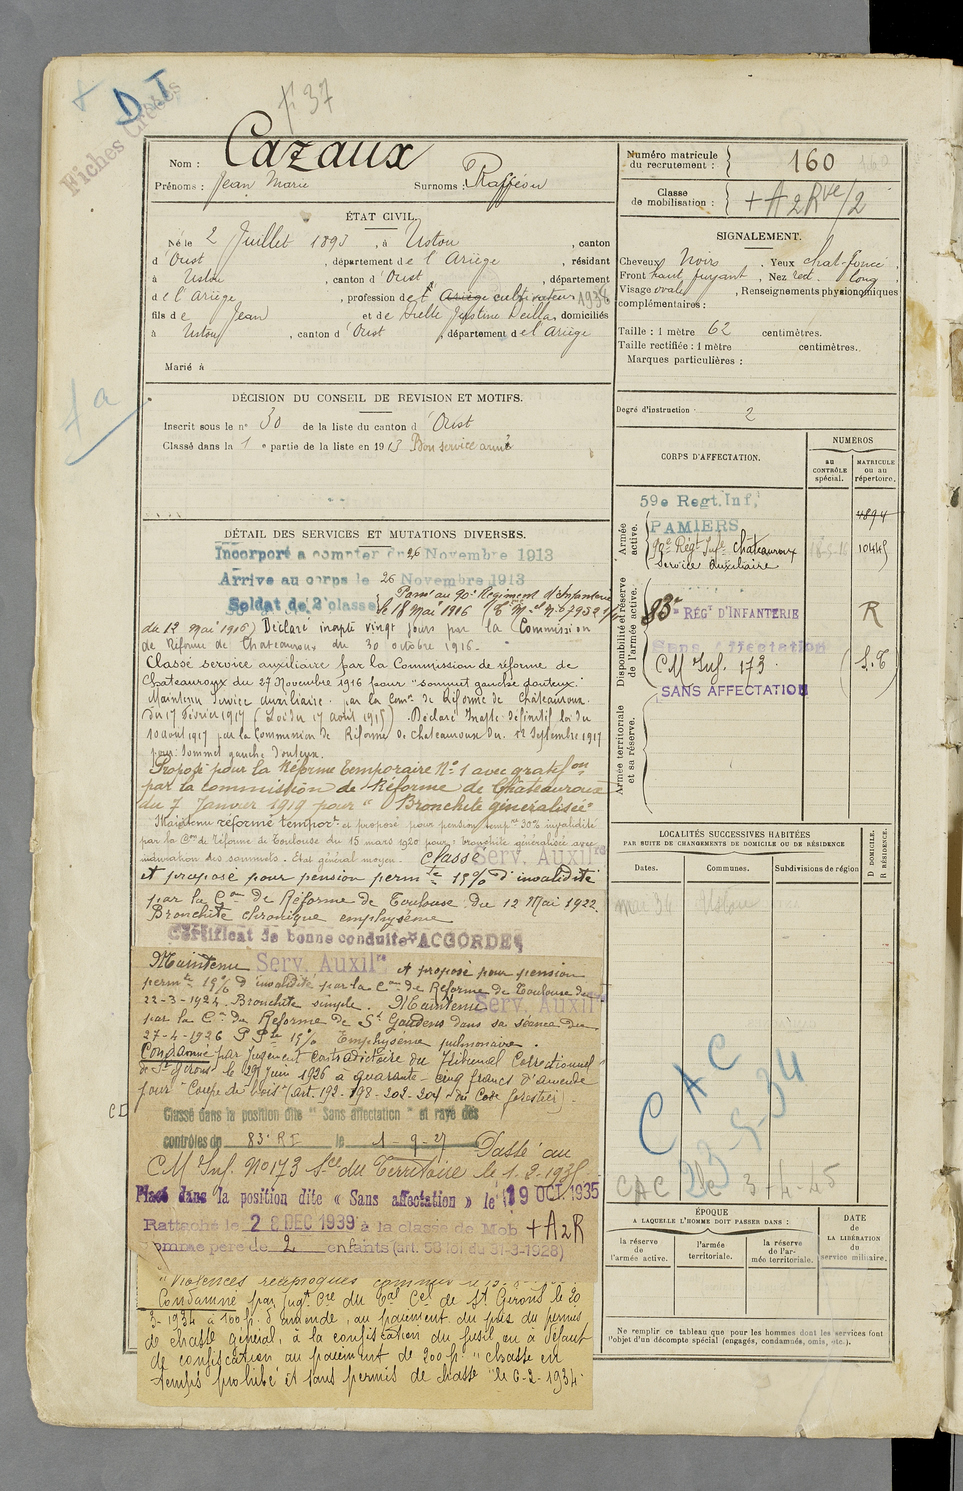 + D T
f° 37
Fiches Croisées
Nom : Cazaux
Prénoms : Jean Marie Surnoms : Rafféou
Numéro matricule du recrutement : 160
Classe de mobilisation : + A 2 Rve/2
ÉTAT CIVIL.
Né le 2 Juillet 1893, à Ustou, canton
d'Oust, département de l'Ariège, résidant
à Ustou, canton d'Oust, département
de l'Ariège, profession de cultivateur
fils de Jean et de Justine, domiciliés
à Ustou, canton d'Oust, département de l'Ariège
Marié à
SIGNALEMENT.
Cheveux Noirs. Yeux chat-foncé
Front haut fuyant, Nez rect. long
Visage ovale, Renseignements physionomiques
complémentaires :
Taille : 1 mètre 62 centimètres.
Taille rectifiée : 1 mètre centimètres.
Marques particulières :
Degré d'instruction : 2
DÉCISION DU CONSEIL DE REVISION ET MOTIFS.
Inscrit sous le n° 30 de la liste du canton d'Oust
Classé dans la 1e partie de la liste en 1913 Bon service armé
DÉTAIL DES SERVICES ET MUTATIONS DIVERSES.
Incorporé a compter du 26 Novembre 1913
Arrivé au corps le 26 Novembre 1913
Soldat de 2e classe Passé au 90e Régiment d'Infanterie
le 18 Mai 1916
du 12 Mai 1916) Déclaré inapte vingt jours par la Commission
de Réforme de Chateauroux du 30 octobre 1916.
Classé service auxiliaire par la Commission de réforme de
Chateauroux du 27 Novembre 1916 pour "sommet gauche douteux."
Maintenu Service Auxiliaire par la Comon de Réforme de Châteauroux
du 17 Février 1917 (Loi du 17 août 1915). Déclaré Inapte définitif loi du
10 août 1917 par la Commission de Réforme de Chateauroux du 12 Septembre 1917
pour Sommet gauche Douteux.
Proposé pour la Réforme Temporaire N° 1 avec gratifon
par la commission de Réforme de Châteauroux
du 7 Janvier 1919 pour "Bronchite généralisée"
Maintenu réformé tempore et proposé pour pension tempre 30% invalidité
par la Con de réforme de Toulouse du 15 mars 1920 pour : bronchite généralisée avec
induration des sommets. Etat général moyen. Classé Serv. Auxilre
et proposé pour pension permte 15% d'invalidité
par la Con de Réforme de Toulouse du 12 Mai 1922.
Bronchite chronique emphysème
Certificat de bonne conduite "ACCORDÉ"
Maintenu Serv. Auxilre et proposé pour pension
permte 15% d'invalidité par la Con de Réforme de Toulouse du
22-3-1924. Bronchite simple. Maintenu Serv. Auxil
par la Con de Réforme de St Gaudens dans sa séance du
27-4-1926 P Pte 15% Emphysème pulmonaire.
Condamné par Jugement contradictoire du Tribunal Correctionnel
de St Girons le 29 Juin 1926 à quarante-cinq francs d'amende
pour "Coupe de bois" (art. 192-198-202-204 du Code forestier).
Classé dans la position dite "Sans affectation" et rayé des
contrôles du 83e RI le 1-9-27 Passé au
CM Inf. No 173 Son du Territoire le
Placé dans la position dite « Sans affectation » le 19 OCT. 1935
Rattaché le 28 DEC 1939 à la classe de Mob + A2R
comme père de 2 enfants (art. 58 loi du 31-3-1928)
"Violences réciproques
Condamné par Jugt Cre du Tal Cel de St Girons le 20
3-1934 à 100 fr. d'amende, au paiement du prix du permis
de chasse général, à la confiscation du fusil ou à défaut
de confiscation au paiement de 200 fr. "chasse en
temps prohibé et sans permis de chasse" le 6-2-1934.
CORPS D'AFFECTATION.
NUMÉROS
au CONTRÔLE spécial.
MATRICULE ou au répertoire.
Armée active.
59e Regt. Inf. PAMIERS 4894
90e Régt Inf. Châteauroux 10445
Service Auxiliaire
Disponibilité et réserve de l'armée active.
83e RÉGt D'INFANTERIE R
Sans affectation
CM Inf. 173
SANS AFFECTATION
Armée territoriale et sa réserve.
LOCALITÉS SUCCESSIVES HABITÉES
PAR SUITE DE CHANGEMENTS DE DOMICILE OU DE RÉSIDENCE
Dates. Communes. Subdivisions de région
D DOMICILE. R RÉSIDENCE.
mai 34 Ustou
CAC 23-5-34
CAC le 3-4-45
ÉPOQUE
A LAQUELLE L'HOMME DOIT PASSER DANS :
la réserve de l'armée active.
l'armée territoriale.
la réserve de l'armée territoriale.
DATE de LA LIBÉRATION du service militaire.
Ne remplir ce tableau que pour les hommes dont les services font
l'objet d'un décompte spécial (engagés, condamnés, omis, etc.).